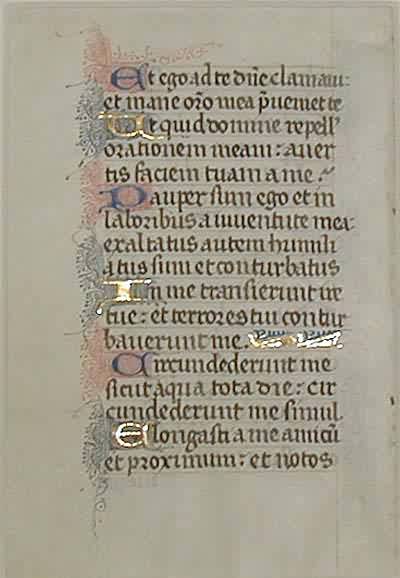 Et ego ad te dñe clamaui:
et mane orõ mea p̃ueniet te
Ut quid domine repell'
orationem meam: auer
tis faciem tuam a me.
Pauper sum ego et in
laboribus a iuuentute mea:
exaltatus autem humili
atus sum et conturbatus
In me transierunt ire
tue: et terrores tui contur
bauerunt me.
Circundederunt me
sicut aqua tota die: cir
cundederunt me simul
Elongasti a me amicũ
et proximum: et notos